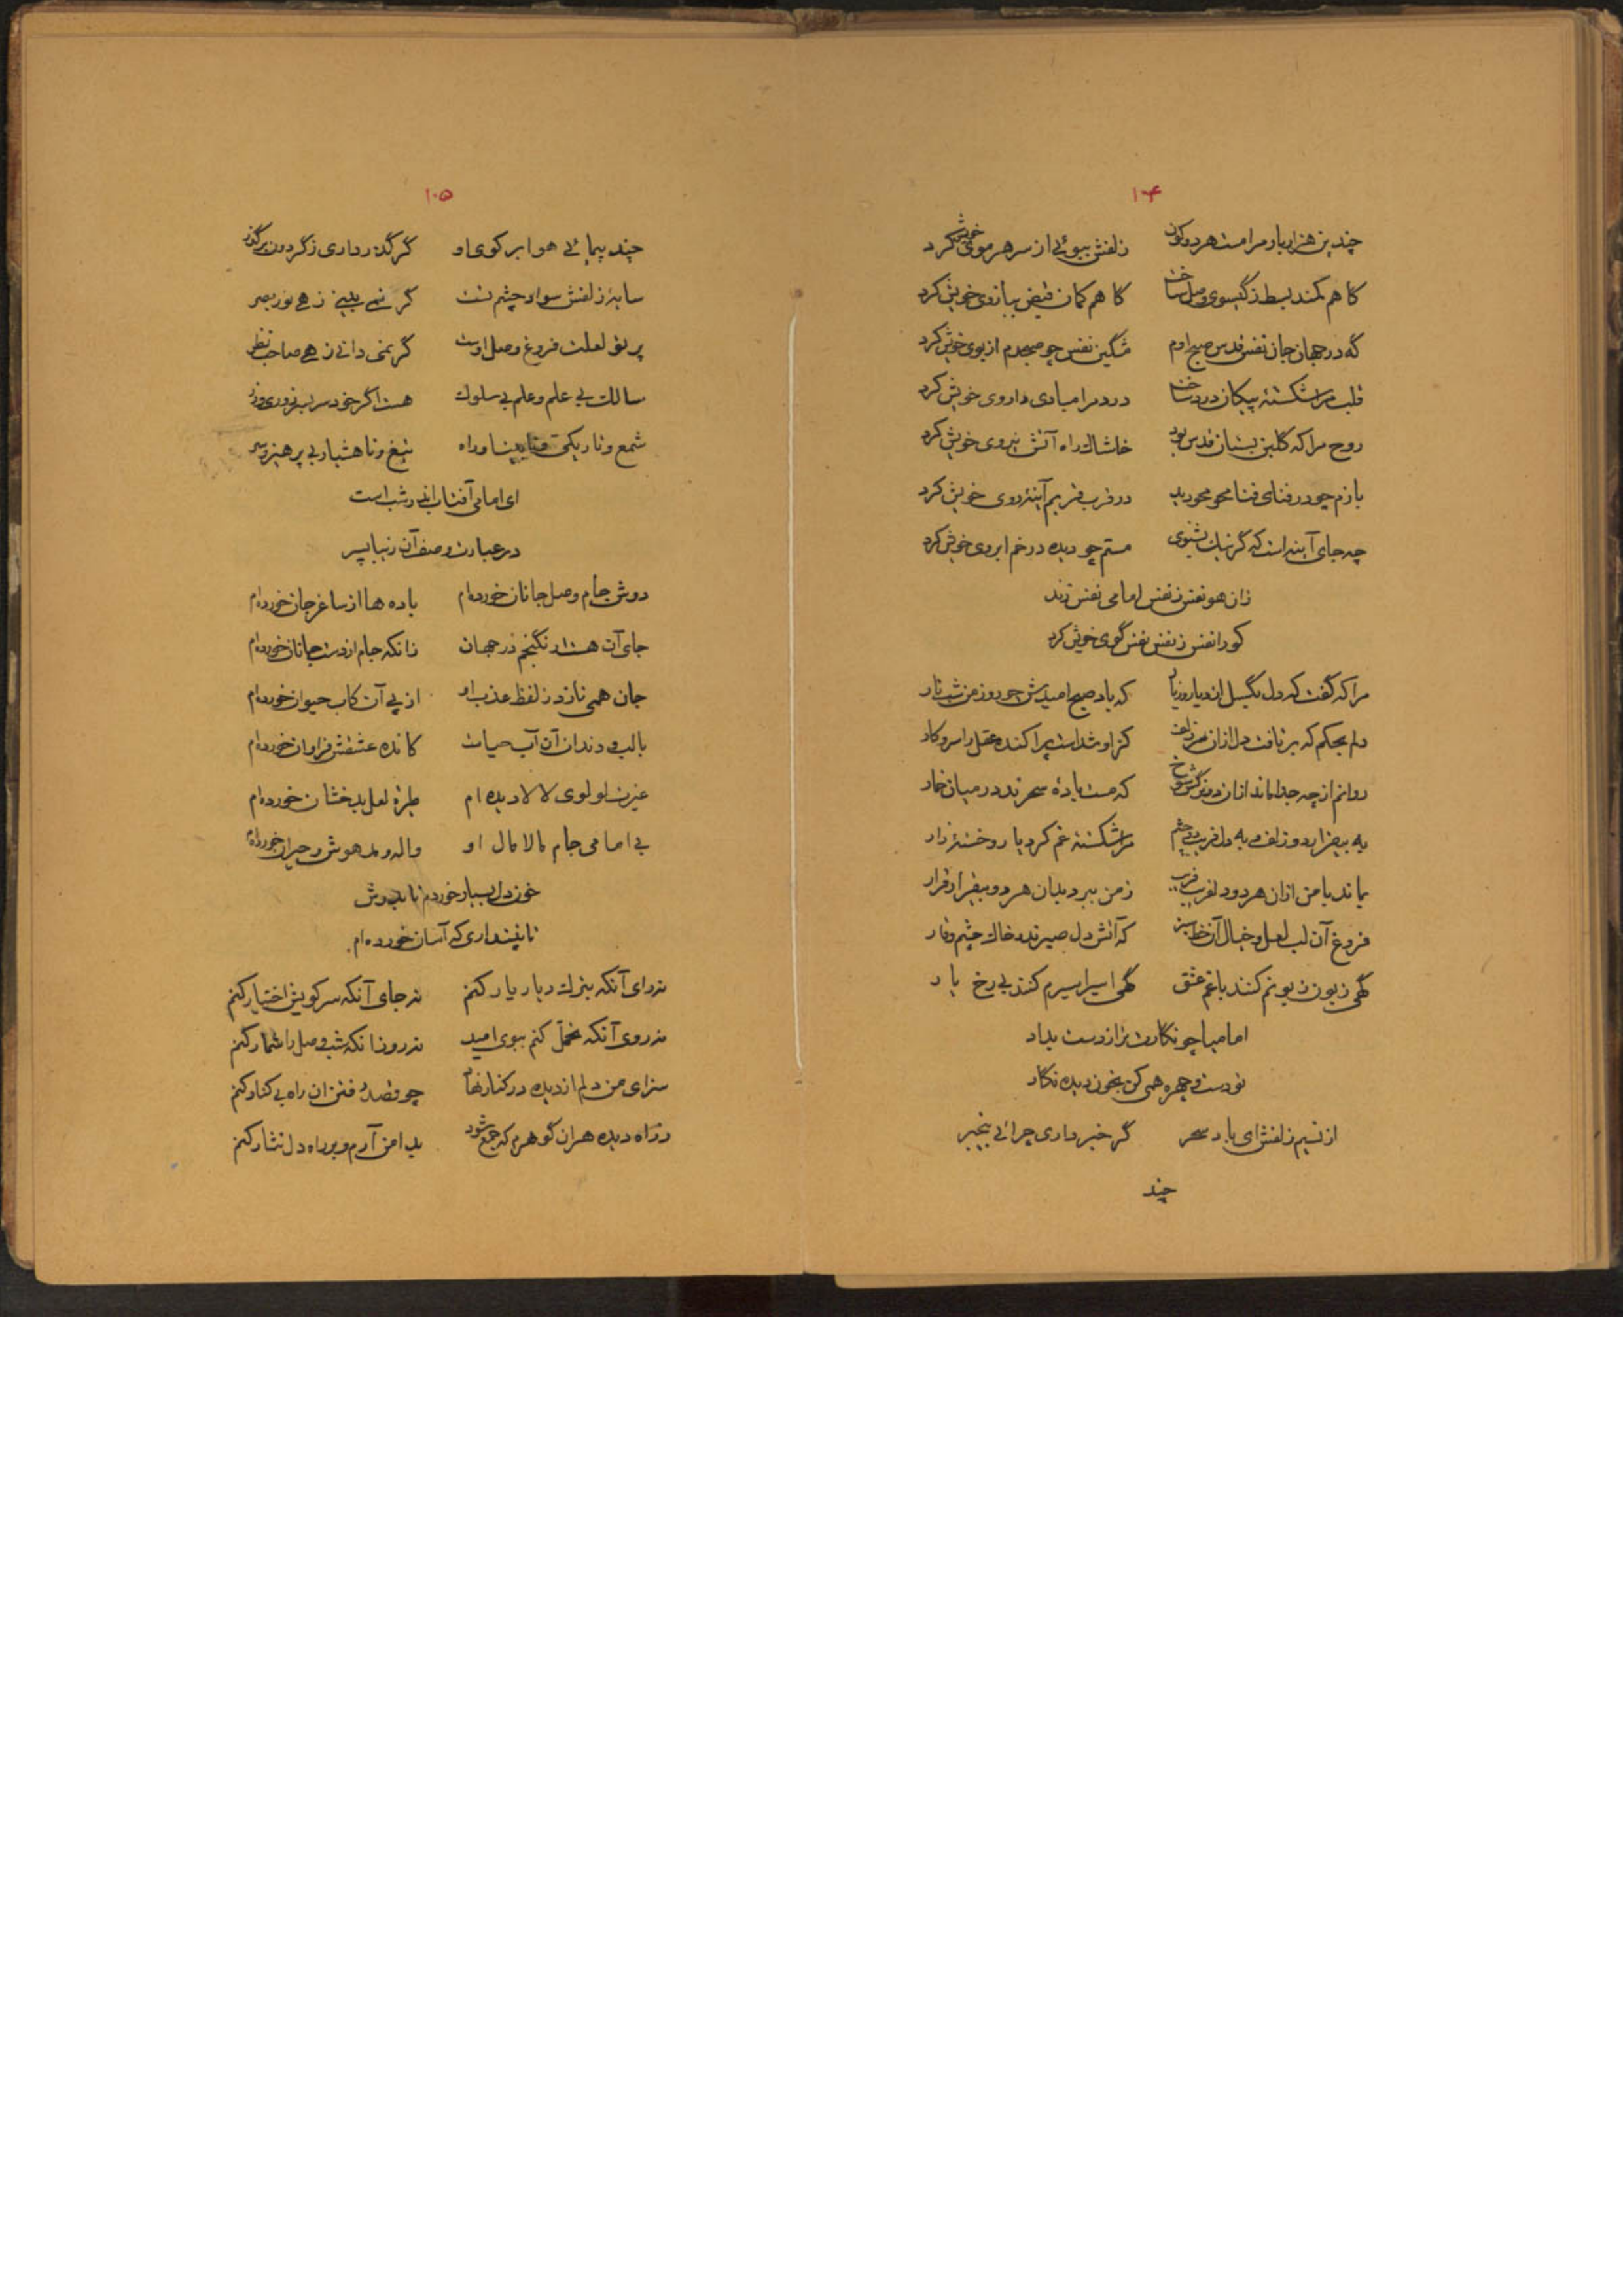 ۱۰۴
چندین هزار بار مرا مست هر دو کون زلفش ببوئی از سر هر موی خویش کرد
کاهم کمند بسط ز گیسوی وصل ساخت کاهم کمان قبض ببازوی خویش کرد
که در جهان جان نفس قدس صبح دم مشگین نفس چو صبحدم از بوی خویش کرد
قلب مرا شکسته پیکان درد ساخت درد مرا مبادی داروی خویش کرد
روح مرا که گلبن بستان قدس بود خاشاک راه آتش نیروی خویش کرد
بازم چو در فنای فنا محو محو دید در قرب قربم آینه روی خویش کرد
چه جای آینه است که گر نیک بشنوی مستم چو دیده در خم ابروی خویش کرد
زان هو نفس ز نفس امامی نفس نزند
کو را نفس ز نفس نفس گوی خویش کرد
مرا که گفت که دل بگسل از دیار و ز یار که باد صبح امیدش چو روز من شب تار
دلم بحکم که بر تافت دل از ان سر زلف کز او شداست پراکنده عقل را سر و کار
روانم از چه جدا ماند از ان دو نرگس شوخ که مست بادهٔ سحرند در میان خمار
به بیقرار دو زلف و به دلفریب دو چشم مرا شکسته غم کرد یار و خستهٔ زار
بماند با من ازان هر دو دلفریب فریب ز من ببرد بدان هر دو بیقرار قرار
فروغ آن لب لعل و خیال آن خط سبز که آتش دل صبرند و خاک چشم وقار
گهی زبون زبونم کنند با غم عشق گهی اسیر اسیرم کنند بی رخ یار
امامیا چو نگارت نزار دست بداد
تو دست و چهره همی کن بخون دیده نگار
از نسیم زلفش ای باد سحر گر خبر داری چرائی بیخبر
چند
۱۰۵
چند پیمائی هوا بر کوی او گر گذر داری ز گردون بر گذر
سایهٔ زلفش سواد چشم تست گر نمی بینی زهی نور بصر
پرتو لعلت فروغ وصل اوست گر نمی دانی زهی صاحب نظر
سالک بی علم و علم بی سلوک هست اگر خود سر بسر زوری و زر
شمع و تاریکی و نابینا و راه تیغ و ناهشیار بی پرهیز و سر
ای امامی آفتاب اندر شب است
در عبارت وصف آن زیبا پسر
دوش جام وصل جانان خورده‌ام باده ها از ساغر جان خورده‌ام
جای آن هست ار نگنجم در جهان زانکه جام از دست جانان خورده‌ام
جان همی نازد ز لفظ عذب او از پی آن کاب حیوان خورده‌ام
با لب و دندان آن آب حیات کانده عشقش فراوان خورده‌ام
غیرت لولوی لالا دیده ام طیرهٔ لعل بدخشان خورده‌ام
بی امامی جام مالامال او واله و مدهوش و حیران خورده‌ام
خون دل بسیار خوردم تا بدوش
تا نپنداری که آسان خورده ام
نه رای آنکه بترک دیار یار کنم نه جای آنکه سر کویش اختیار کنم
نه روی آنکه تحمل کنم ببوی امید نه روز آنکه شب وصل را شمار کنم
سزای من دلم از دیده در کنار نهاد چو قصد رفتن ان راه بی کنار کنم
ز راه دیده هر ان گوهرم که جمع شود بدامن آرم و بر راه دل نثار کنم